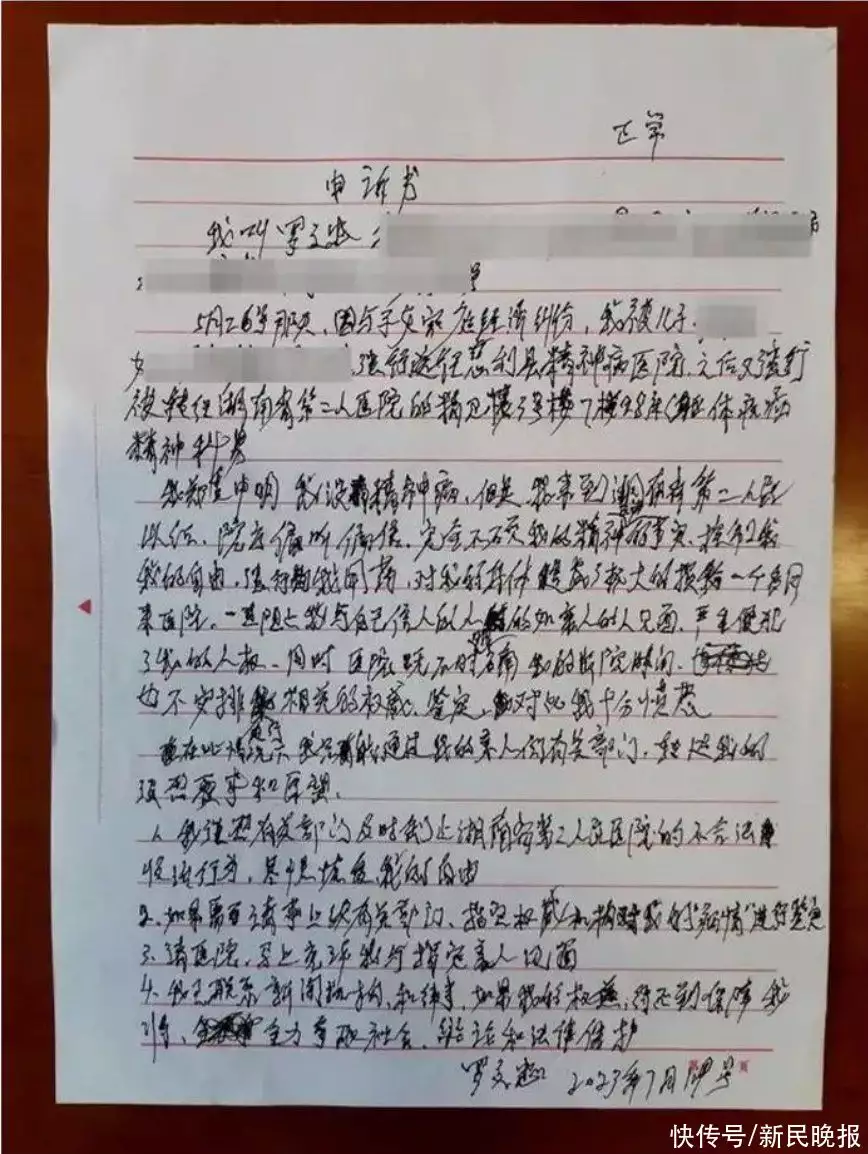 正常
申诉书
我叫罗
号
5月26号那天，因与子女家庭经济纠纷，我被儿子
女 强行送往慈利县精神病医院，之后又强行
被转往湖南省第二人医院的 楼7楼48床 体疾病
精神科男
我郑重申明我没精神病，但是我来到湖南省第二人民
以后，院方偏听偏信，完全不顾我的精神 事实，控制
我的自由，强行 我用药，对我的身体造成了极大的损 一个多月
来医院，一直阻止我与自己信人的人 的如亲人的人见面，严重侵犯
了我的人权，同时医院既不 我的出院时间，
也不安排 相关的权威 鉴定，对此我十分愤怒
在此情况下 我只 能通过我的亲人 有关部门，转达我的
强烈要求和愿望：
1、我强烈有关部门及时 止湖南省第二人民医院的不合法
收治行为，尽快恢复我的自由
2、如果需要请 上级有关部门、指定权威机构对我的"病情"进行鉴定
3、请医院，马上允许我与指定亲人见面
4、我已联系新闻机构，和律 ，如果我的权益，得不到保障我
将， 全力争取社会、 论和法律 护
罗 2023年7月 号
快传号/新民晚报